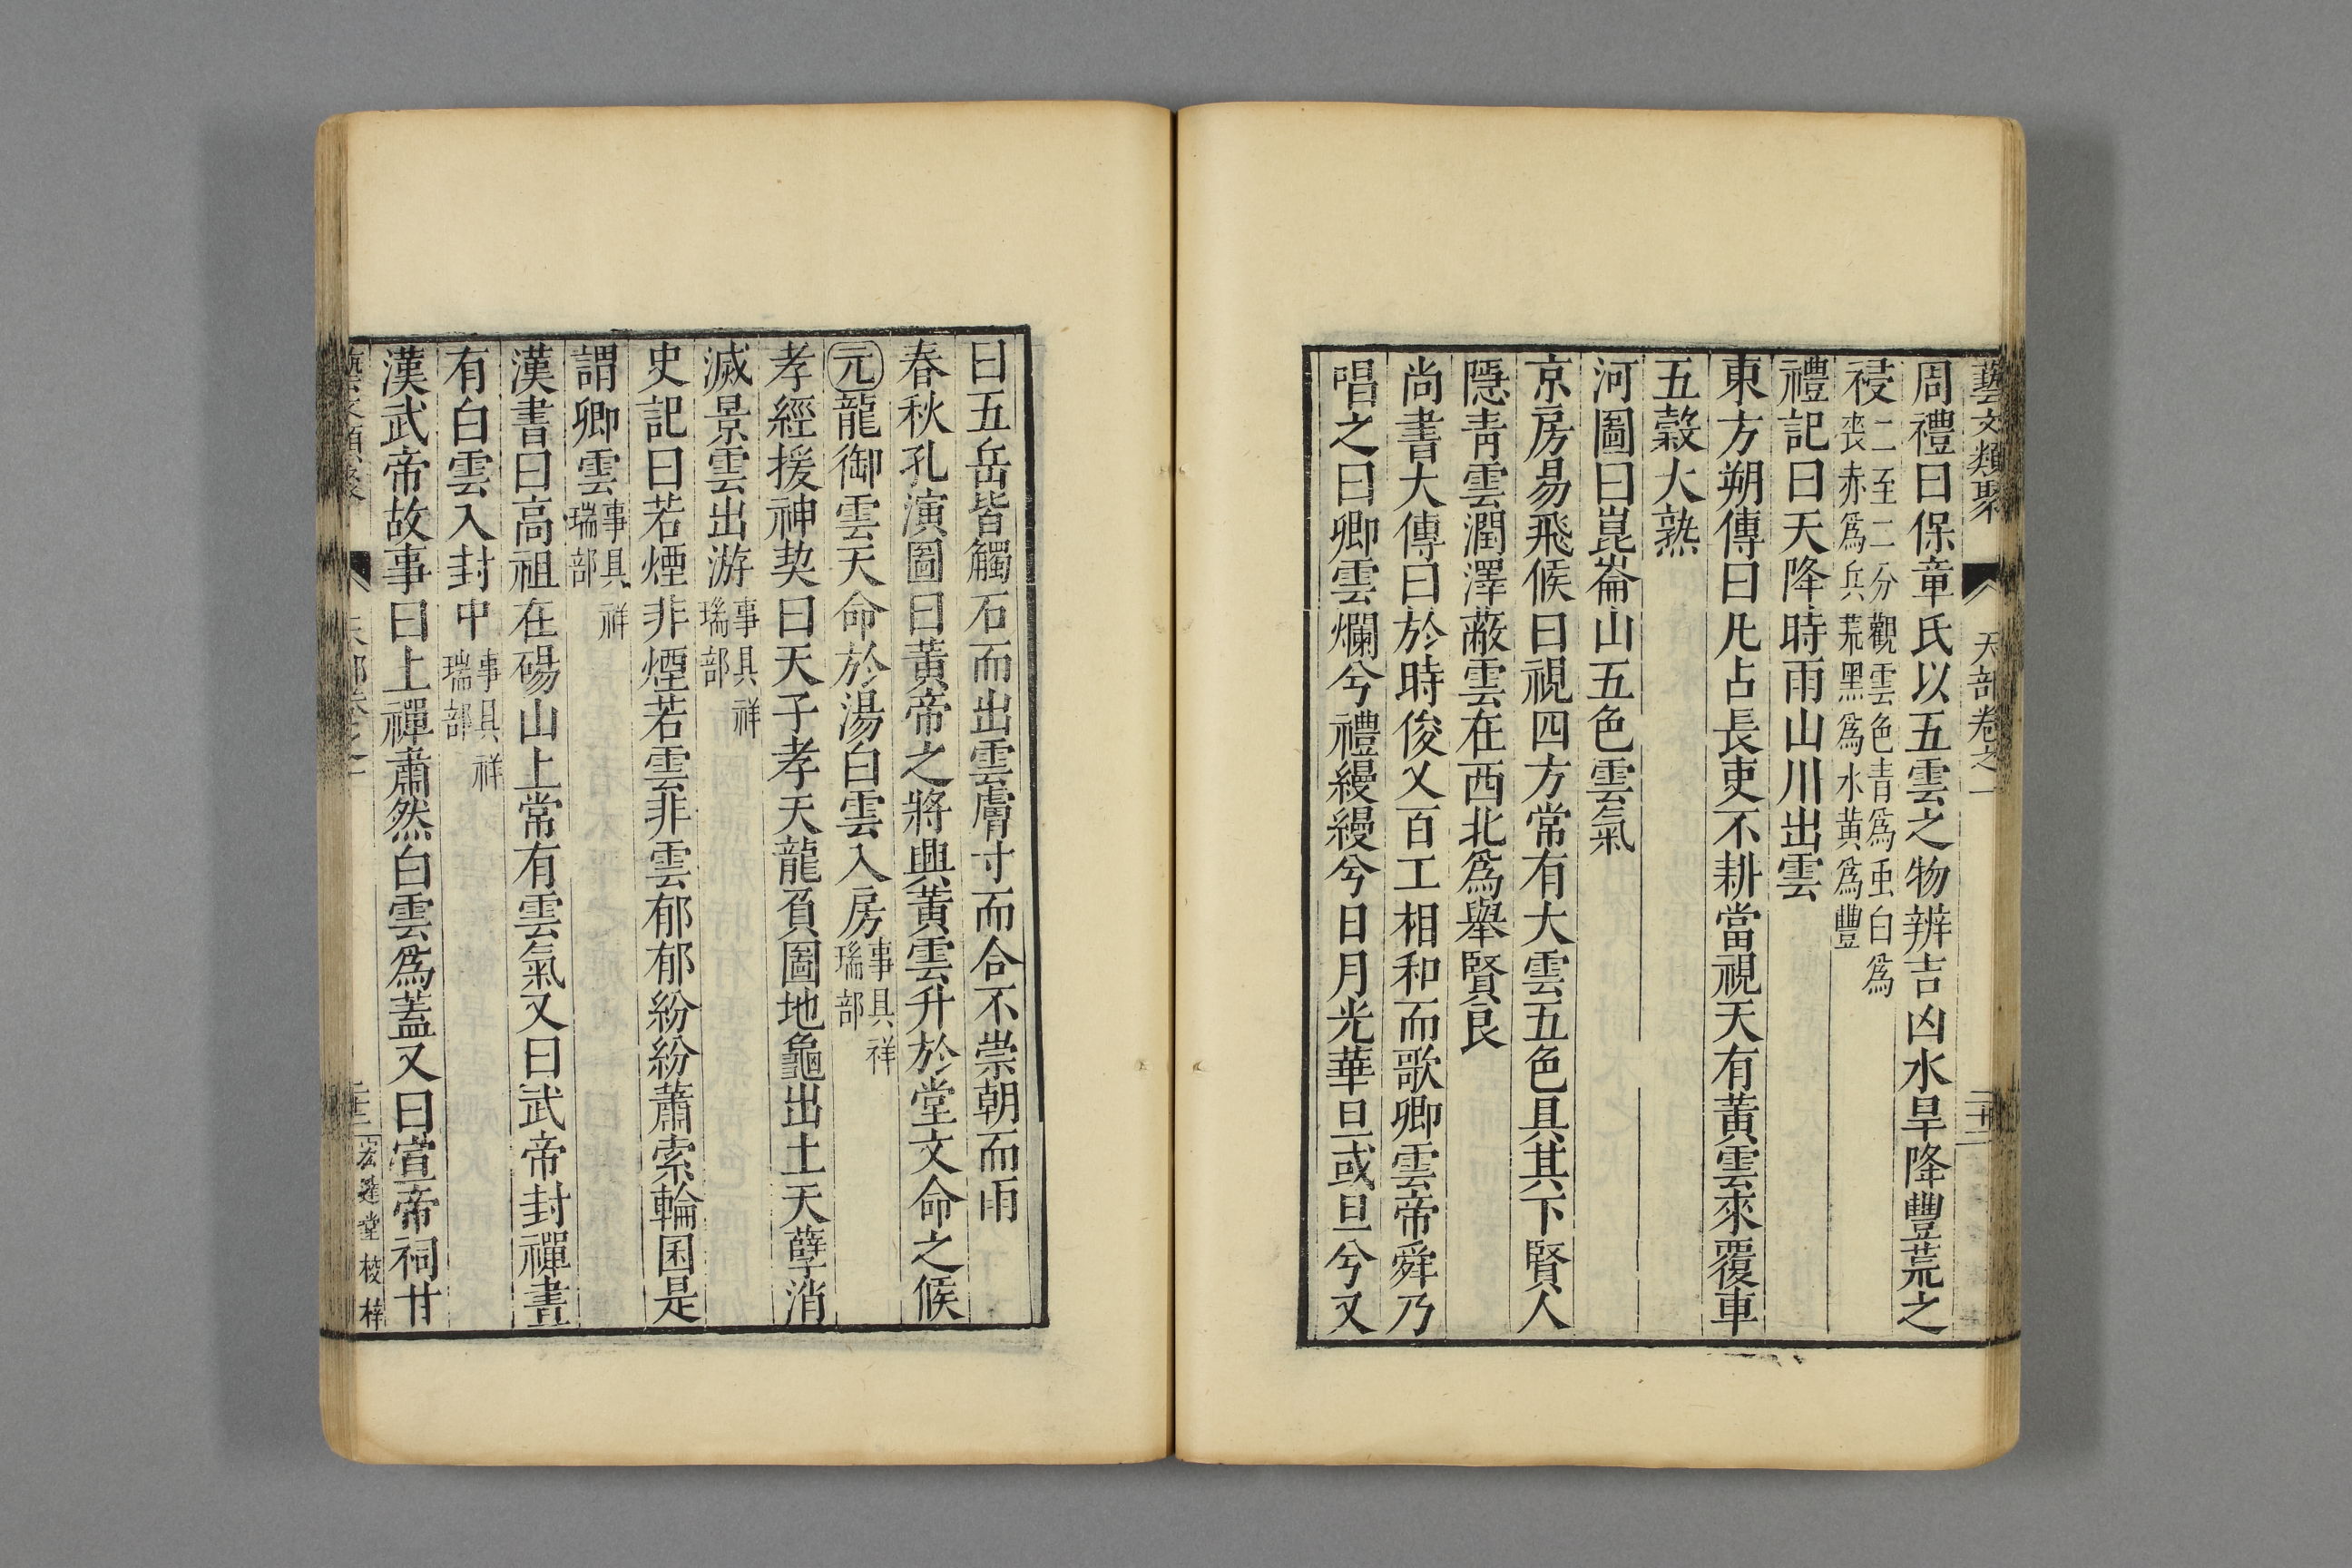 藝文類聚 天部卷之一 廿二
周禮曰保章氏以五雲之物辨吉凶水旱降豐荒之
祲二至二分觀雲色青爲虫白爲
喪赤爲兵荒黑爲水黃爲豐
禮記曰天降時雨山川出雲
東方朔傳曰凡占長吏不耕當視天有黃雲來覆車
五穀大熟
河圖曰崑崙山五色雲氣
京房易飛候曰視四方常有大雲五色具其下賢人
隱青雲潤澤蔽雲在西北爲舉賢良
尚書大傳曰於時俊乂百工相和而歌卿雲帝舜乃
唱之曰卿雲爛兮禮縵縵兮日月光華旦或旦兮又
曰五岳皆觸石而出雲膚寸而合不崇朝而雨
春秋孔演圖曰黃帝之將興黃雲升於堂文命之候
元龍御雲天命於湯白雲入房事具祥
瑞部
孝經援神契曰天子孝天龍負圖地龜出土天孽消
滅景雲出游事具祥
瑞部
史記曰若煙非煙若雲非雲郁郁紛紛蕭索輪困是
謂卿雲事具祥
瑞部
漢書曰高祖在碭山上常有雲氣又曰武帝封禪晝
有白雲入封中事具祥
瑞部
漢武帝故事曰上禪肅然白雲爲蓋又曰宣帝祠甘
藝文類聚 天部卷之一 宏達堂校梓